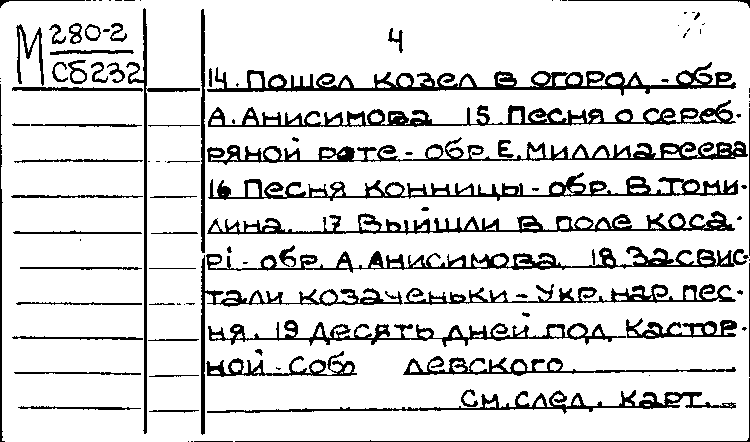 М 280-2
Сб232
4
14. Пошел козел в огород, - обр.
А. Анисимова 15 Песня о сереб-
ряной роте - обр. Е. Миллиареева
16 Песня конницы - обр. В. Томи-
лина. 17 Выйшли в поле коса-
рі - обр. А. Анисимова. 18. Засвис-
тали козаченьки - Укр. нар. пес-
ня. 19 Десять дней под Кастор-
ной - Собо левского.
См. след. карт.